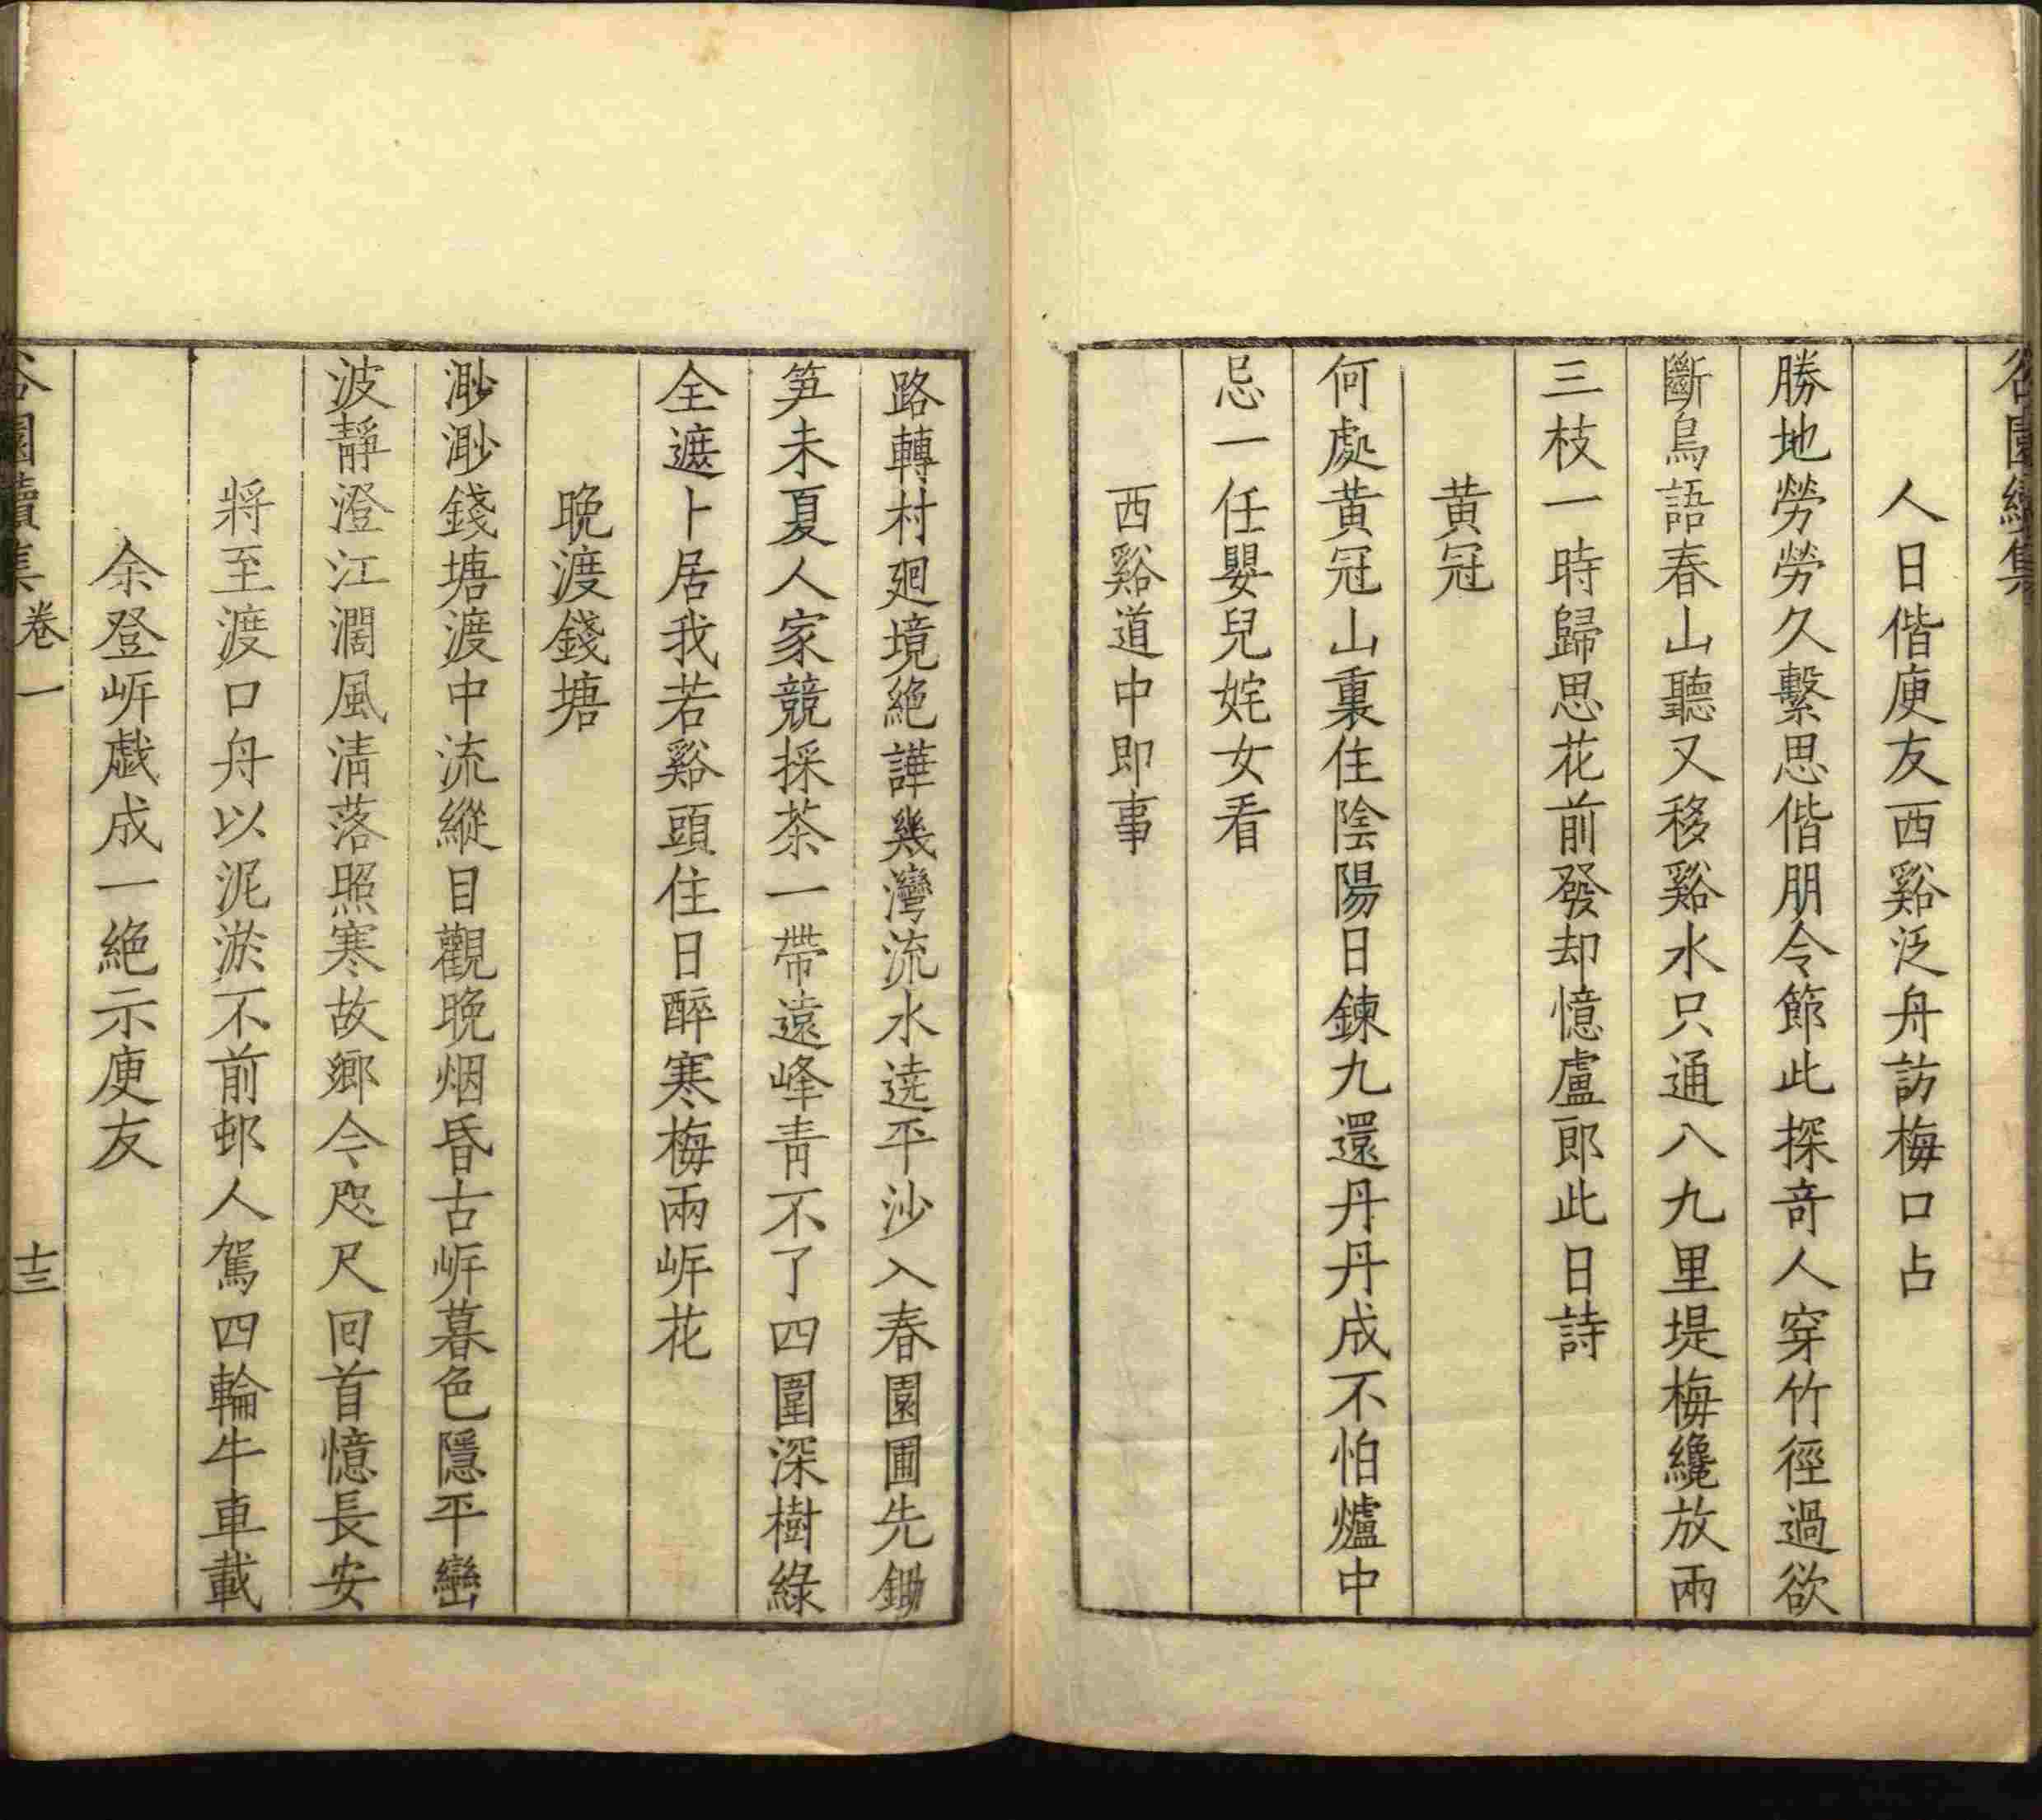 人日偕庚友西谿泛舟訪梅口占
勝地勞勞久繫思偕朋令節此探竒人穿竹徑過欲
斷鳥語春山聽又移谿水只通八九里堤梅纔放兩
三枝一時歸思花前發却憶盧郎此日詩
黄冠
何處黄冠山裏住陰陽日鍊九還丹丹成不怕爐中
忌一任嬰兒姹女看
西谿道中即事
路轉村廻境絶譁幾灣流水遶平沙入春園圃先鋤
笋未夏人家競採茶一帶遠峰青不了四圍深樹綠
全遮卜居我若谿頭住日醉寒梅兩㟁花
晩渡錢塘
渺渺錢塘渡中流縱目觀晩烟昏古㟁暮色隱平巒
波靜澄江濶風淸落照寒故鄉今咫尺回首憶長安
將至渡口舟以泥淤不前邨人駕四輪牛車載
余登㟁戯成一絶示庚友
園續集 卷一 十三